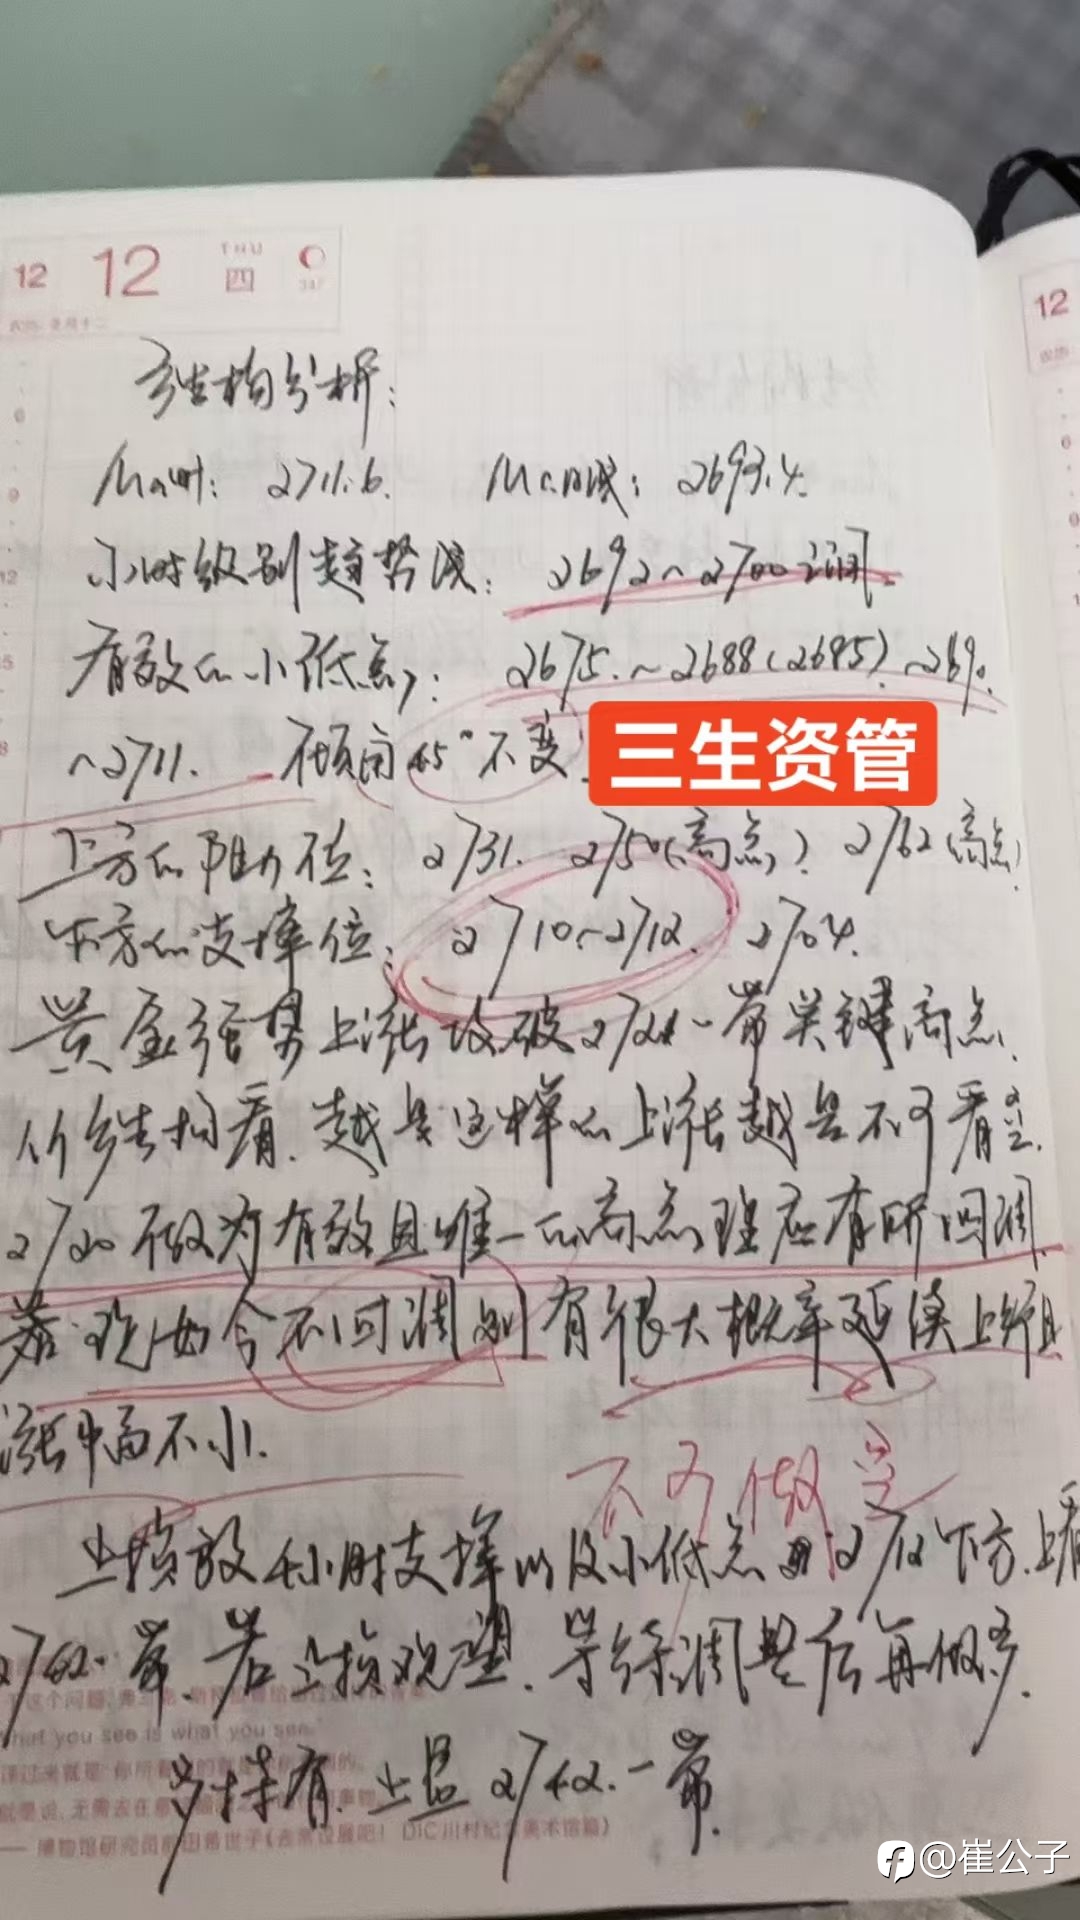 12 12 THU 四 347
12
结构分析：
Ma时：2711.6. Ma日线：2693.4.
小时级别趋势线：2692~2700之间.
有效的小低点：2675.~2688(2685).~269
~2711. 倾角45°不变.
三生资管
上方的阻力位：2731. 2750(高点) 2762(高点)
下方的支撑位：2710~2712. 2704.
黄金强势上涨攻破272 一带关键高点.
从结构看.越是这样的上涨越是不可看空.
2720做为有效且唯一的高点理应有所回调.
若现如今不回调则有很大概率延续上行且
涨幅不小.
不可做空
止损放4小时支撑以及小低点 2712下方.上看
一带.若止损观望.等待调整后再做多.
多持有.止盈2742.一带.
hat you see is what you see.
DIC川村纪 美术馆篇）
@崔公子